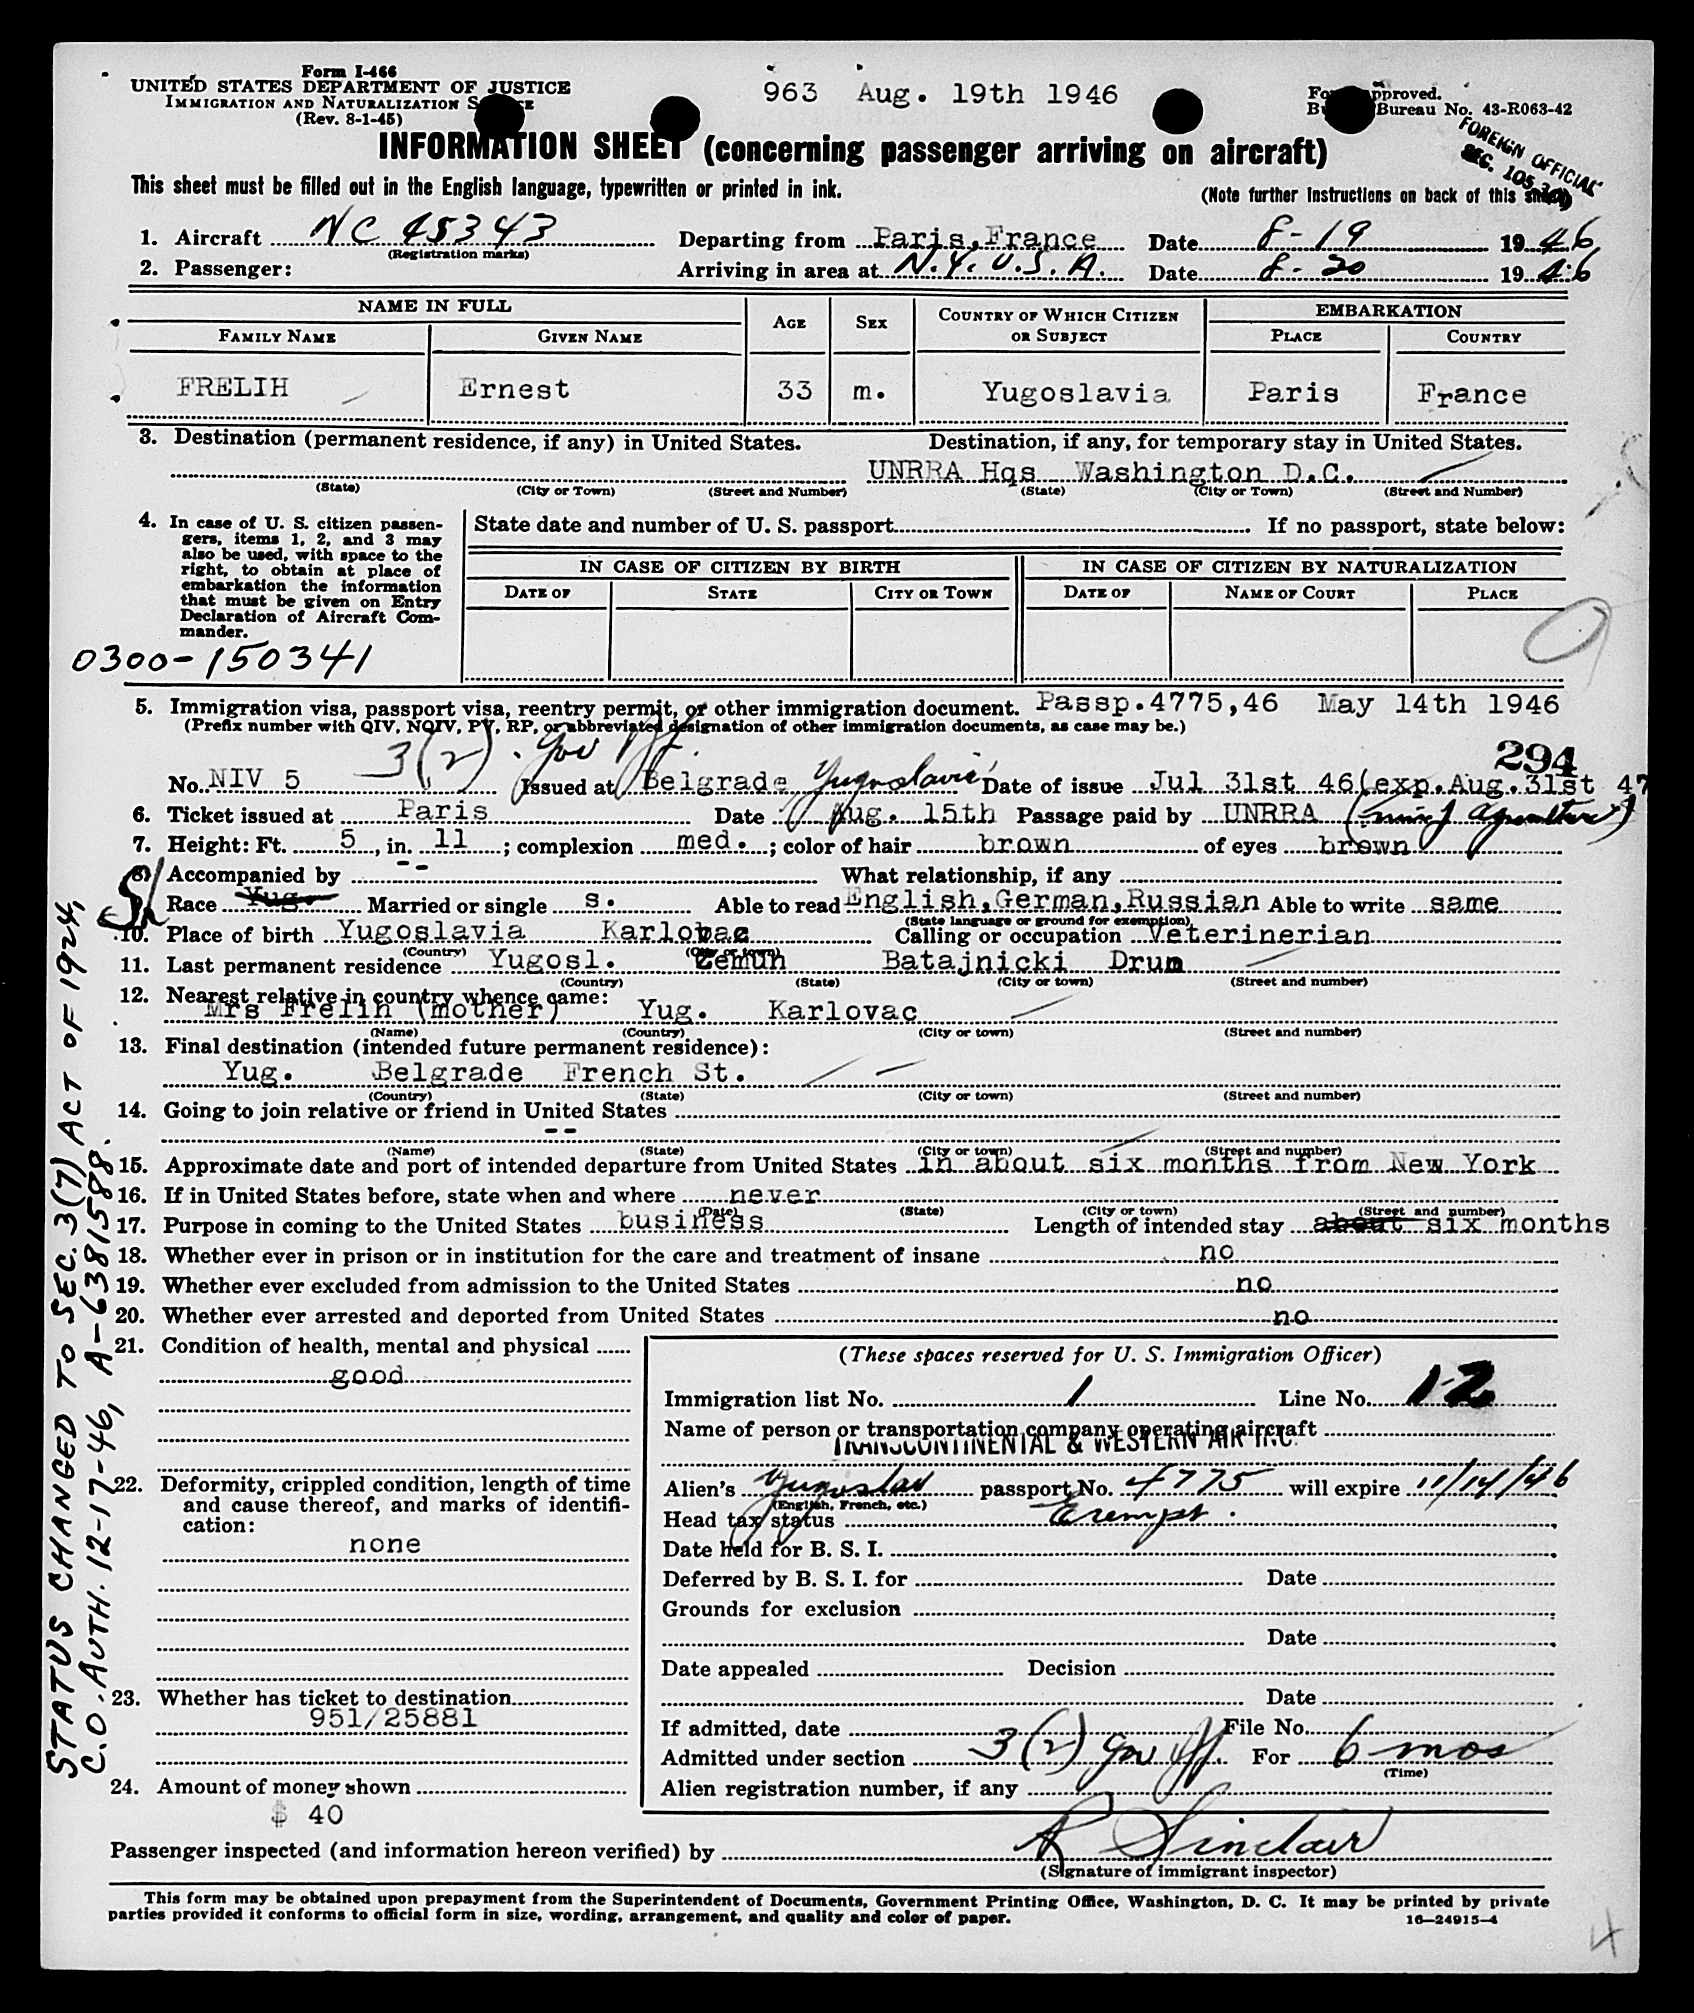 Form I-466
UNITED STATES DEPARTMENT OF JUSTICE
IMMIGRATION AND NATURALIZATION
(Rev. 8-1-45)
963 Aug. 19th 1946
pproved.
Bureau No. 43-R063-42
FOREIGN OFFICIAL
SEC. 105.3
INFORMATION SHEET (concerning passenger arriving on aircraft)
This sheet must be filled out in the English language, typewritten or printed in ink.
(Note further instructions on back of this sheet)
1. Aircraft NC 45343 Departing from Paris, France Date 8-19 1946
(Registration marks)
2. Passenger: Arriving in area at N.Y. U.S.A. Date 8-20 1946
NAME IN FULL AGE SEX COUNTRY OF WHICH CITIZEN OR SUBJECT EMBARKATION
FAMILY NAME GIVEN NAME PLACE COUNTRY
FRELIH Ernest 33 m. Yugoslavia Paris France
3. Destination (permanent residence, if any) in United States. Destination, if any, for temporary stay in United States.
UNRRA Hqs Washington D.C.
(State) (City or Town) (Street and Number) (State) (City or Town) (Street and Number)
4. In case of U. S. citizen passen-
gers, items 1, 2, and 3 may
also be used, with space to the
right, to obtain at place of
embarkation the information
that must be given on Entry
Declaration of Aircraft Com-
mander.
State date and number of U. S. passport If no passport, state below:
IN CASE OF CITIZEN BY BIRTH IN CASE OF CITIZEN BY NATURALIZATION
DATE OF STATE CITY OR TOWN DATE OF NAME OF COURT PLACE
0300-150341
5. Immigration visa, passport visa, reentry permit, or other immigration document. Passp.4775,46 May 14th 1946
(Prefix number with QIV, NQIV, PV, RP, or abbreviated designation of other immigration documents, as case may be.)
3(2) Gov Off.
294
No. NIV 5 Issued at Belgrade Yugoslavia Date of issue Jul 31st 46(exp.Aug.31st 47
6. Ticket issued at Paris Date Aug. 15th Passage paid by UNRRA (Min of Agriculture)
7. Height: Ft. 5, in. 11; complexion med.; color of hair brown of eyes brown
8. Accompanied by -- What relationship, if any
Race Yug. Married or single s. Able to read English,German,Russian Able to write same
(State language or ground for exemption)
10. Place of birth Yugoslavia Karlovac Calling or occupation Veterinerian
(Country) (City or town)
11. Last permanent residence Yugosl. Zemun Batajnicki Drum
(Country) (State) (City or town) (Street and number)
12. Nearest relative in country whence came:
Mrs Frelih (mother) Yug. Karlovac
(Name) (Country) (City or town) (Street and number)
13. Final destination (intended future permanent residence):
Yug. Belgrade French St.
(Country) (State) (City or town) (Street and number)
14. Going to join relative or friend in United States
--
(Name) (State) (City or town) (Street and number)
15. Approximate date and port of intended departure from United States in about six months from New York
16. If in United States before, state when and where never
(Date) (State) (City or town) (Street and number)
17. Purpose in coming to the United States business Length of intended stay about six months
18. Whether ever in prison or in institution for the care and treatment of insane no
19. Whether ever excluded from admission to the United States no
20. Whether ever arrested and deported from United States no
21. Condition of health, mental and physical
good
22. Deformity, crippled condition, length of time
and cause thereof, and marks of identifi-
cation:
none
23. Whether has ticket to destination
951/25881
24. Amount of money shown
$ 40
(These spaces reserved for U. S. Immigration Officer)
Immigration list No. 1 Line No. 12
Name of person or transportation company operating aircraft
TRANSCONTINENTAL & WESTERN AIR INC.
Alien's Yugoslav passport No. 4775 will expire 11/14/46
(English, French, etc.)
Head tax status Exempt.
Date held for B. S. I.
Deferred by B. S. I. for Date
Grounds for exclusion
Date
Date appealed Decision
Date
If admitted, date File No.
Admitted under section 3(2) Gov Off. For 6 mos
(Time)
Alien registration number, if any
Passenger inspected (and information hereon verified) by R Sinclair
(Signature of immigrant inspector)
This form may be obtained upon prepayment from the Superintendent of Documents, Government Printing Office, Washington, D. C. It may be printed by private
parties provided it conforms to official form in size, wording, arrangement, and quality and color of paper.
16—24915-4
4
STATUS CHANGED TO SEC. 3(7) ACT OF 1924,
C.O. AUTH. 12-17-46, A-6381588.